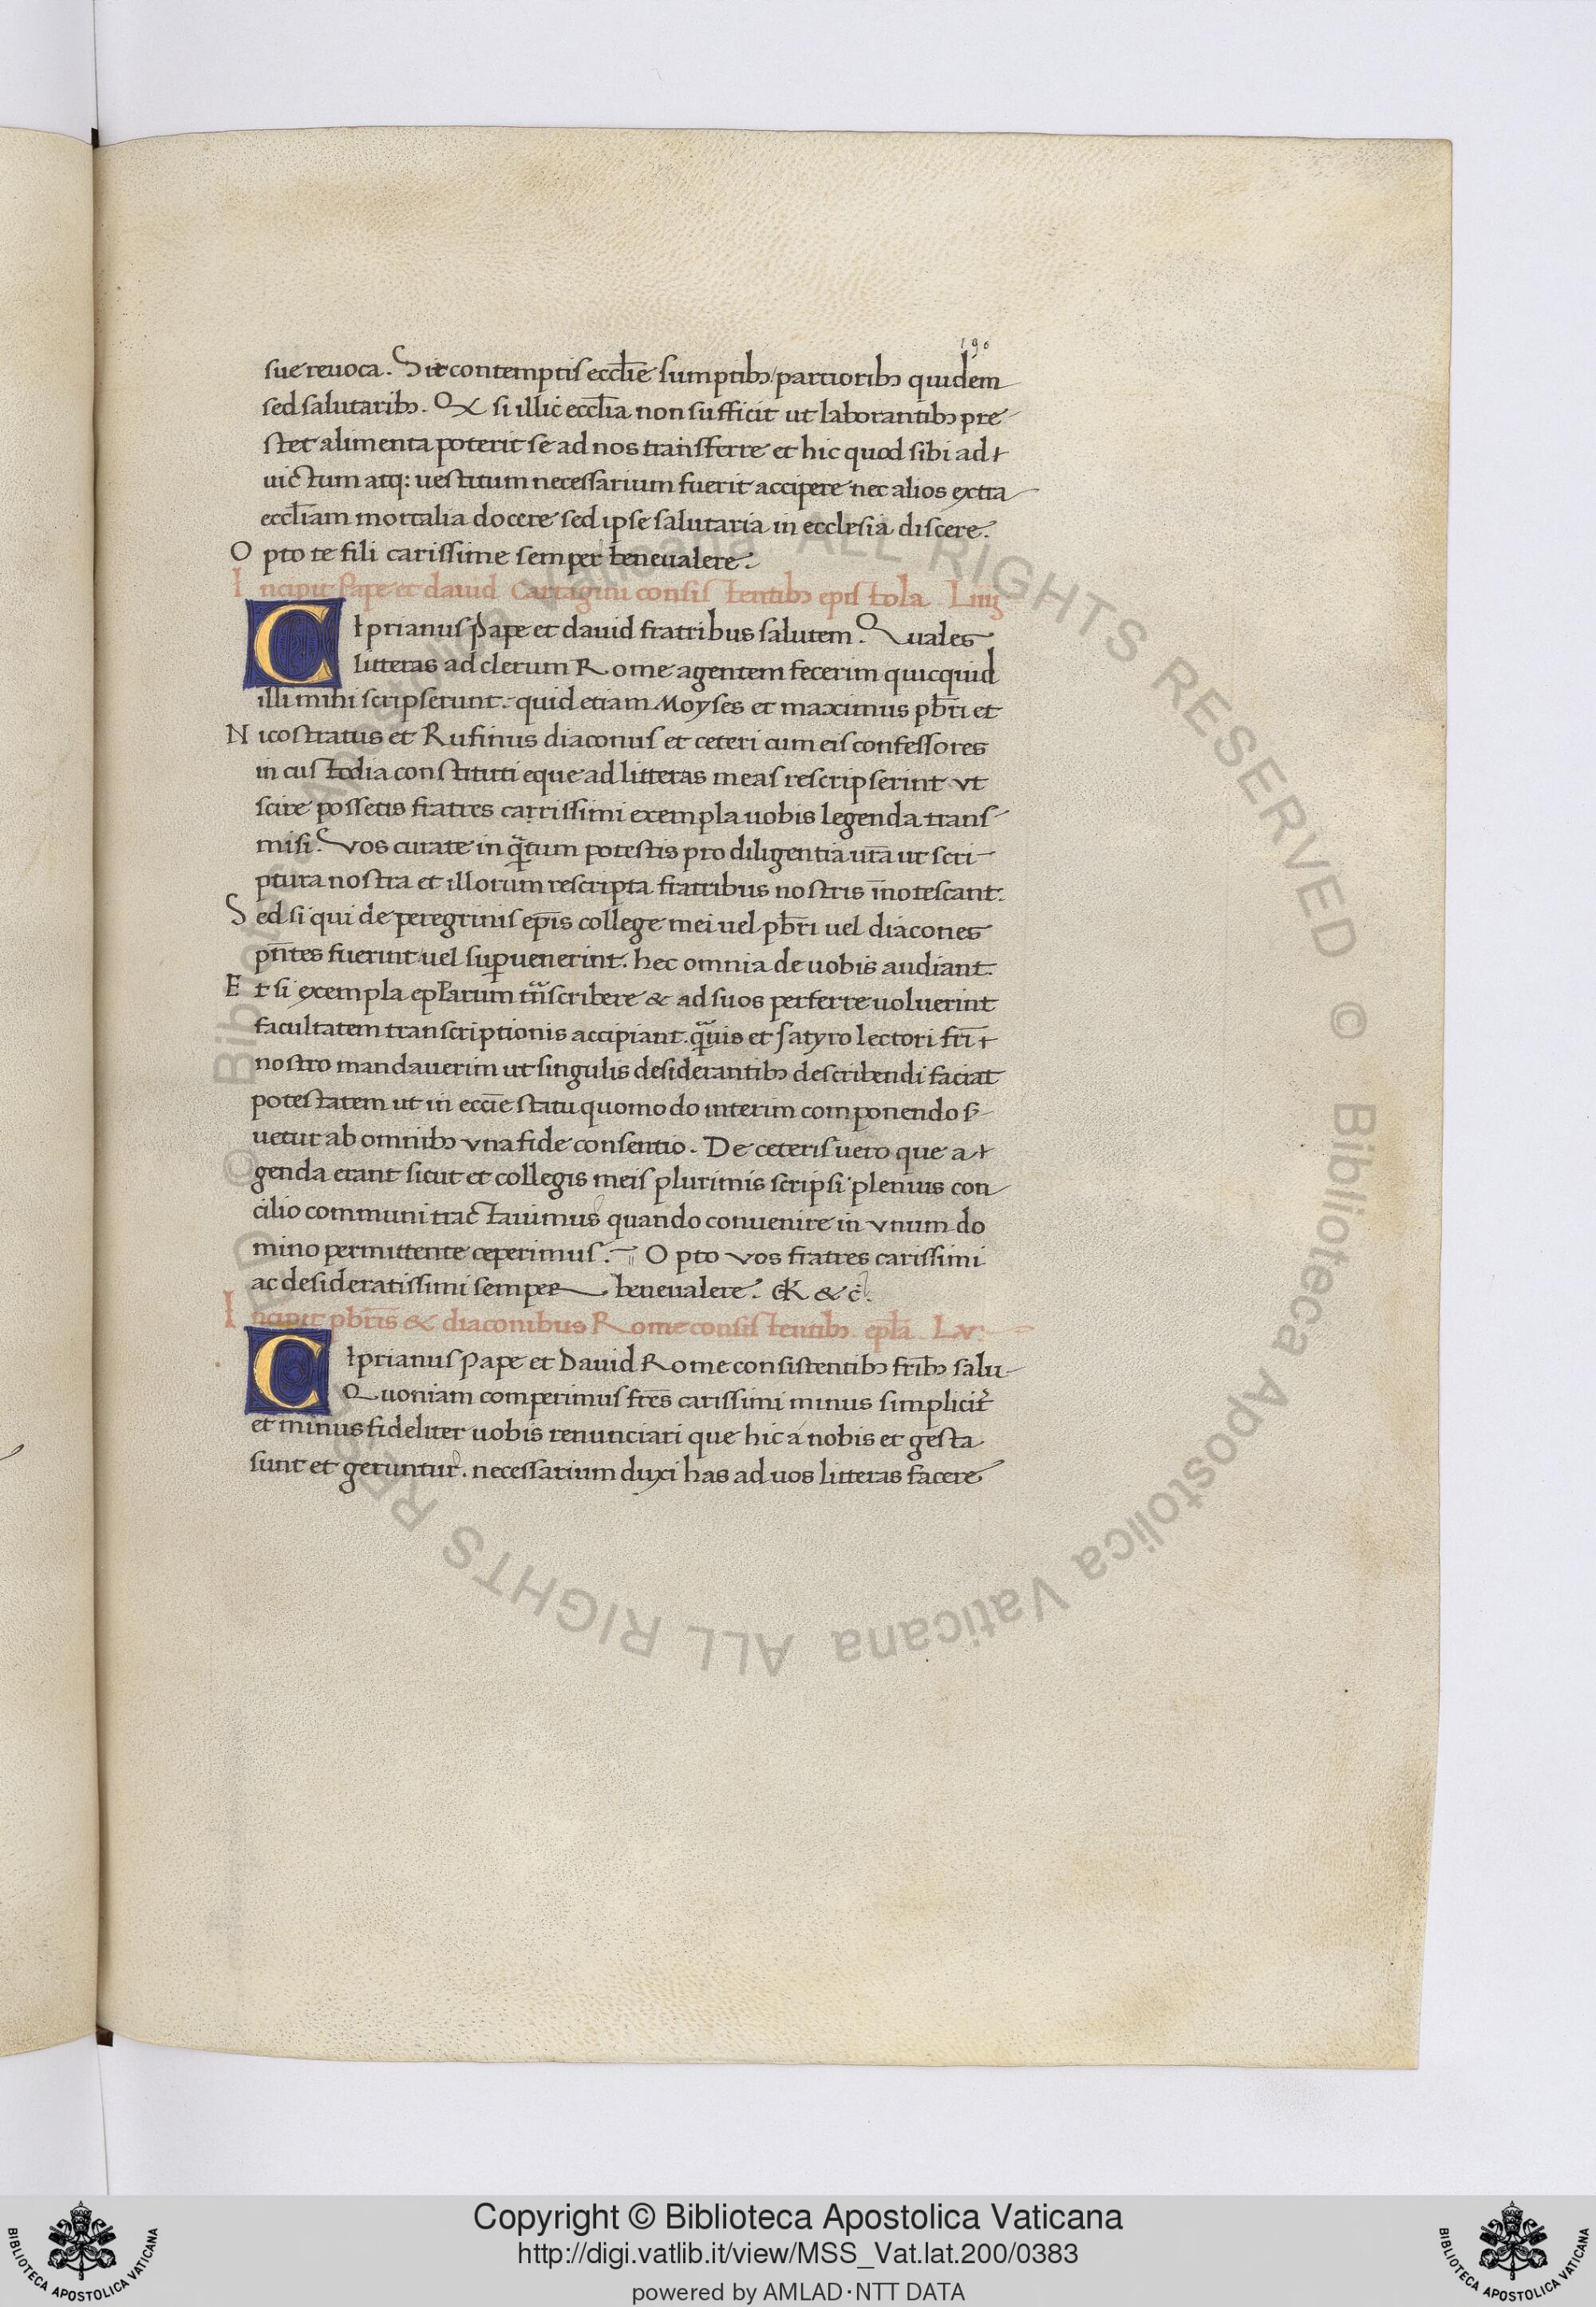 190
sue reuoca. Sit contemptis eccl̄ie sumptibꝫ/ parcioribꝫ quidem
sed salutaribꝫ. Et si illic eccl̄ia non sufficit ut laborantibꝫ pre
stet alimenta poterit se ad nos transferre et hic quod sibi ad
uictum atq: uestitum necessarium fuerit accipere nec alios extra
eccl̄iam mortalia docere sed ipse salutaria in ecclesia discere.
Opto te fili carissime semper beneualere.
Incipit Pape et dauid Cartagini consistentibꝫ epistola. Liiij
Ciprianus Pape et dauid fratribus salutem. Quales
litteras ad clerum Rome agentem fecerim quicquid
illi mihi scripserunt. quid etiam Moyses et maximus pb̄ri et
Nicostratus et Rufinus diaconus et ceteri cum eis confessores
in custodia constituti eque ad litteras meas rescripserint vt
scire possetis fratres carrissimi exempla uobis legenda trans
misi. Vos curate in q̄tum potestis pro diligentia ur̄a ut scri
ptura nostra et illorum rescripta fratribus nostris īnotescant.
Sed si qui de peregrinis ep̄is college mei uel pb̄ri uel diacones
pn̄tes fuerint/ uel suꝑuenerint. hec omnia de uobis audiant.
Et si exempla epl̄arum tn̄scribere & ad suos perferre uoluerint
facultatem transcriptionis accipiant. q̄uis et satyro lectori fr̄i
nostro mandauerim ut singulis desiderantibꝫ describendi faciat
potestatem ut in ecc̄ie statu quomodo interim componendo s̄
uetur ab omnibꝫ vna fide consentio. De ceteris uero que a
genda erant sicut et collegis meis plurimis scripsi plenius con
cilio communi tractauimus quando conuenire in vnum do
mino permittente ceperimus. Opto vos fratres carissimi
ac desideratissimi semper beneualere. & c̄.
Incipit pb̄ris & diaconibus Rome consistentibꝫ. epl̄a. Lv.
Ciprianus Pape et Dauid Rome consistentibꝫ fr̄ibꝫ salu
Quoniam comperimus fr̄es carissimi minus simplicit̄
et minus fideliter uobis renunciari que hic a nobis et gesta
sunt et geruntur. necessarium duxi has ad uos litteras facere
© Biblioteca Apostolica Vaticana ALL RIGHTS RESERVED © Biblioteca Apostolica Vaticana ALL RIGHTS RESERVED
Copyright © Biblioteca Apostolica Vaticana
http://digi.vatlib.it/view/MSS_Vat.lat.200/0383
powered by AMLAD·NTT DATA
BIBLIOTECA APOSTOLICA VATICANA
BIBLIOTECA APOSTOLICA VATICANA